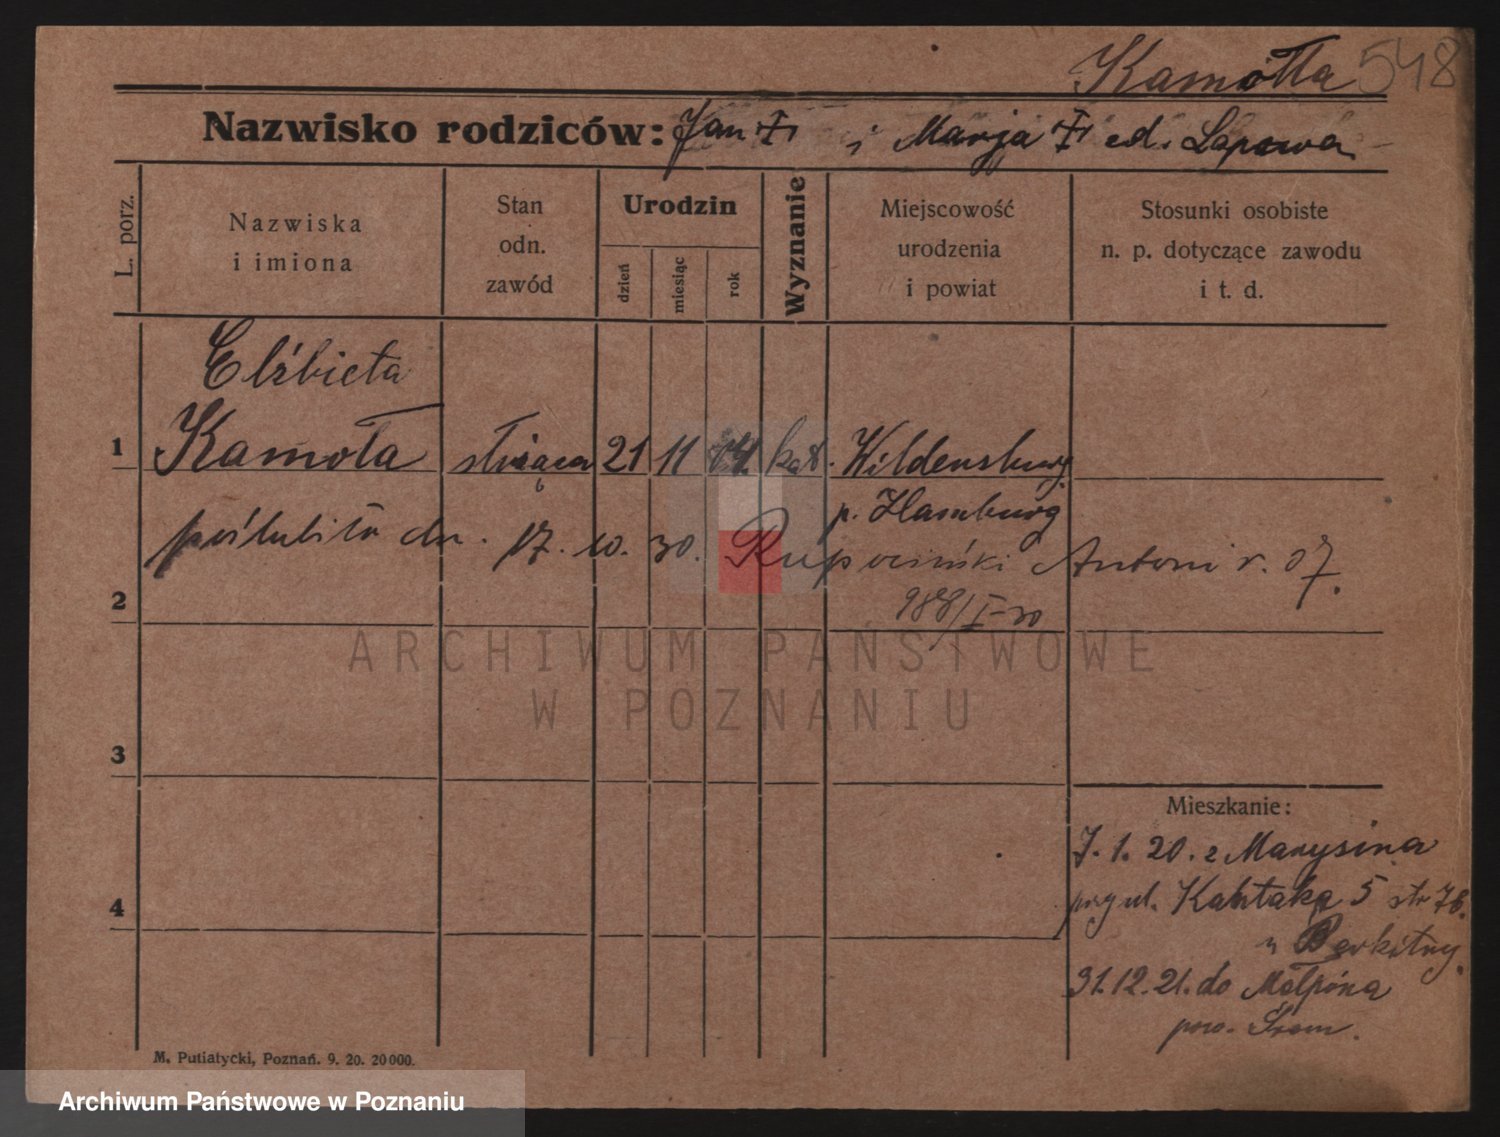 Kamołła 548
Nazwisko rodziców: Jan † i Marja † ed. Lapawa
L. porz.
Nazwiska
i imiona
Stan
odn.
zawód
Urodzin
dzień
miesiąc
rok
Wyznanie
Miejscowość
urodzenia
i powiat
Stosunki osobiste
n. p. dotyczące zawodu
i t. d.
Elżbieta
1 Kamoła służąca 21 11 04 kat. Wildensburg
p. Hamburg
poślubiła dn. 17. 10. 30. Antoni r. 07.
2 988/I-30
3
Mieszkanie:
7. 1. 20. z Marysina
ul. Kantaka 5 str 7b.
4
u
31.12.21. do Małpina
pow. Śrem.
M. Putiatycki, Poznań. 9. 20. 20 000.
ARCHIWUM PAŃSTWOWE
W POZNANIU
Archiwum Państwowe w Poznaniu